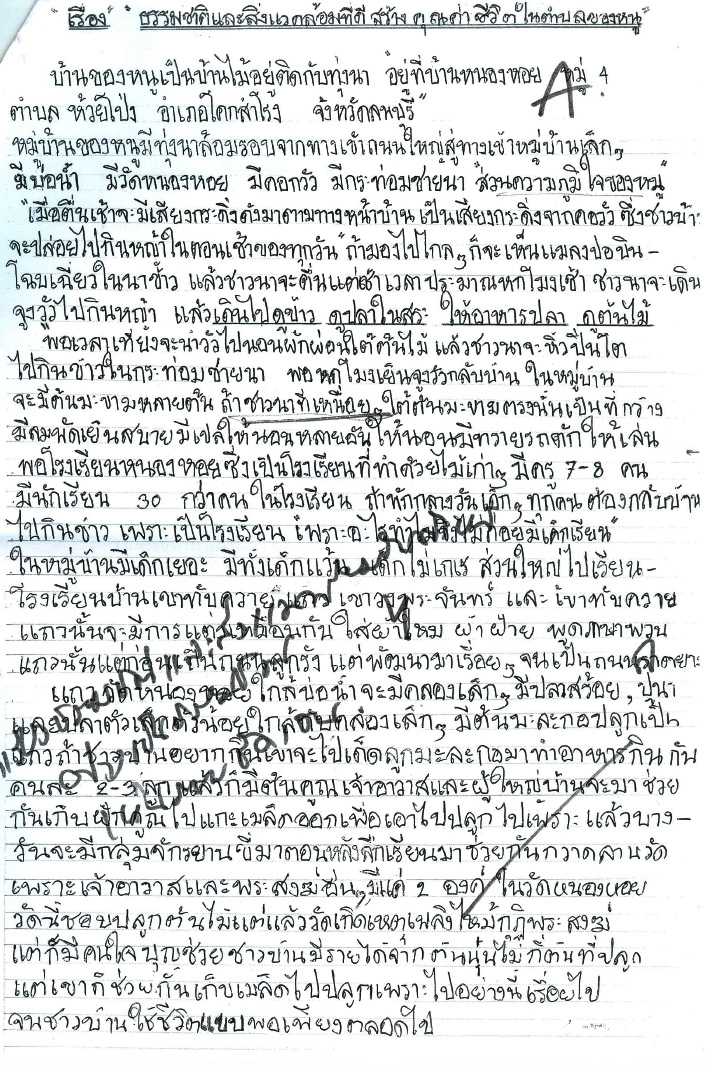 "เรื่อง" "ธรรมชาติและสิ่งแวดล้อมที่ดี สร้าง คุณค่า ชีวิต ในตำบลของหนู"
บ้านของหนูเป็นบ้านไม้อยู่ติดกับทุ่งนา อยู่ที่บ้านหนองหอย หมู่ 4
ตำบล ห้วยโป่ง อำเภอโคกสำโรง จังหวัดลพบุรี"
หมู่บ้านของหนูมีทุ่งนาล้อมรอบจากทางเข้าถนนใหญ่สู่ทางเข้าหมู่บ้านเล็กๆ
มีบ่อน้ำ มีวัดหนองหอย มีคอกวัว มีกระท่อมชายนา "ส่วนความภูมิใจของหนู"
"เมื่อตื่นเช้าจะมีเสียงกระดิ่งดังมาตามทางหน้าบ้าน เป็นเสียงกระดิ่งจากคอวัว ซึ่งชาวบ้า
จะปล่อยไปกินหญ้าในตอนเช้าของทุกวัน" ถ้ามองไปไกลๆ ก็จะเห็นแมลงปอบิน-
โฉบเฉี่ยวในนาข้าว แล้วชาวนาจะตื่นแต่เช้า เวลาประมาณหกโมงเช้า ชาวนาจะเดิน
จูงวัวไปกินหญ้า แล้วเดินไปดูข้าว ดูปลาในสระ ให้อาหารปลา ดูต้นไม้
พอเวลาเที่ยงจะนำวัวไปนอนพักผ่อนใต้ต้นไม้ แล้วชาวนาจะหิ้วปิ่นโต
ไปกินข้าวในกระท่อมชายนา พอหกโมงเย็นจูงวัวกลับบ้าน ในหมู่บ้าน
จะมีต้นมะขามหลายต้น ถ้าชาวนาที่เหนื่อยๆ ใต้ต้นมะขามตรงนั้นเป็นที่กว้าง
มีลมพัดเย็นสบาย มีเปลให้นอนหลายอัน ให้นอนมีทรายรถตักให้เล่น
พอโรงเรียนหนองหอยซึ่งเป็นโรงเรียนที่ทำด้วยไม้เก่าๆ มีครู 7-8 คน
มีนักเรียน 30 กว่าคน ในโรงเรียน ถ้าพักกลางวันเด็กๆ ทุกคน ต้องกลับบ้าน
ไปกินข้าว เพราะเป็นโรงเรียน "เพราะอะไรทำไมจึงไม่ค่อยมีเด็กเรียน"
ในหมู่บ้านมีเด็กเยอะ มีทั้งเด็กแว้น เด็กไม่เกเร ส่วนใหญ่ไปเรียน-
โรงเรียนบ้านเขาทับควาย เขาวงพระจันทร์ และ เขาทับควาย
แถวนั้นจะมีการแต่ง ใส่ผ้าไหม ผ้าฝ้าย พูดภาษาพวน
แถวนั้นแต่ก่อนเป็นถนนลูกรัง แต่พัฒนามาเรื่อยๆ จนเป็นถนน
แถววัดหนองหอย ใกล้บ่อน้ำ จะมีคลองเล็กๆ มีปลาสร้อย, ปูนา
ใกล้กับคลองเล็กๆ มีต้นมะละกอปลูกเป็น
แถวถ้าชาวบ้านอยากกินเขาจะไปเด็ดลูกมะละกอมาทำอาหารกิน กัน
คนละ 2-3 ลูก แล้วก็มีต้นคูณ เจ้าอาวาสและผู้ใหญ่บ้านจะมา ช่วย
กันเก็บฝักคูณไปแกะเมล็ดออกเพื่อเอาไปปลูก ไปเพาะ แล้วบาง-
วันจะมีกลุ่มจักรยาน ขี่มาตอนหลังเลิกเรียนมาช่วยกันกวาดลานวัด
เพราะเจ้าอาวาสและพระสงฆ์อื่นๆ มีแค่ 2 องค์ ในวัดหนองหอย
วัดนี้ชอบปลูกต้นไม้แต่แล้ววัดเกิดเหตุเพลิงไหม้กุฏิพระสงฆ์
แต่ก็มีคนใจบุญช่วยชาวบ้านมีรายได้จาก ต้นนุ่นไม่กี่ต้นที่ปลูก
แต่เขาก็ช่วยกันเก็บเมล็ดไปปลูกเพาะไปอย่างนี้เรื่อยไป
จนชาวบ้านใช้ชีวิตแบบพอเพียงตลอดไป